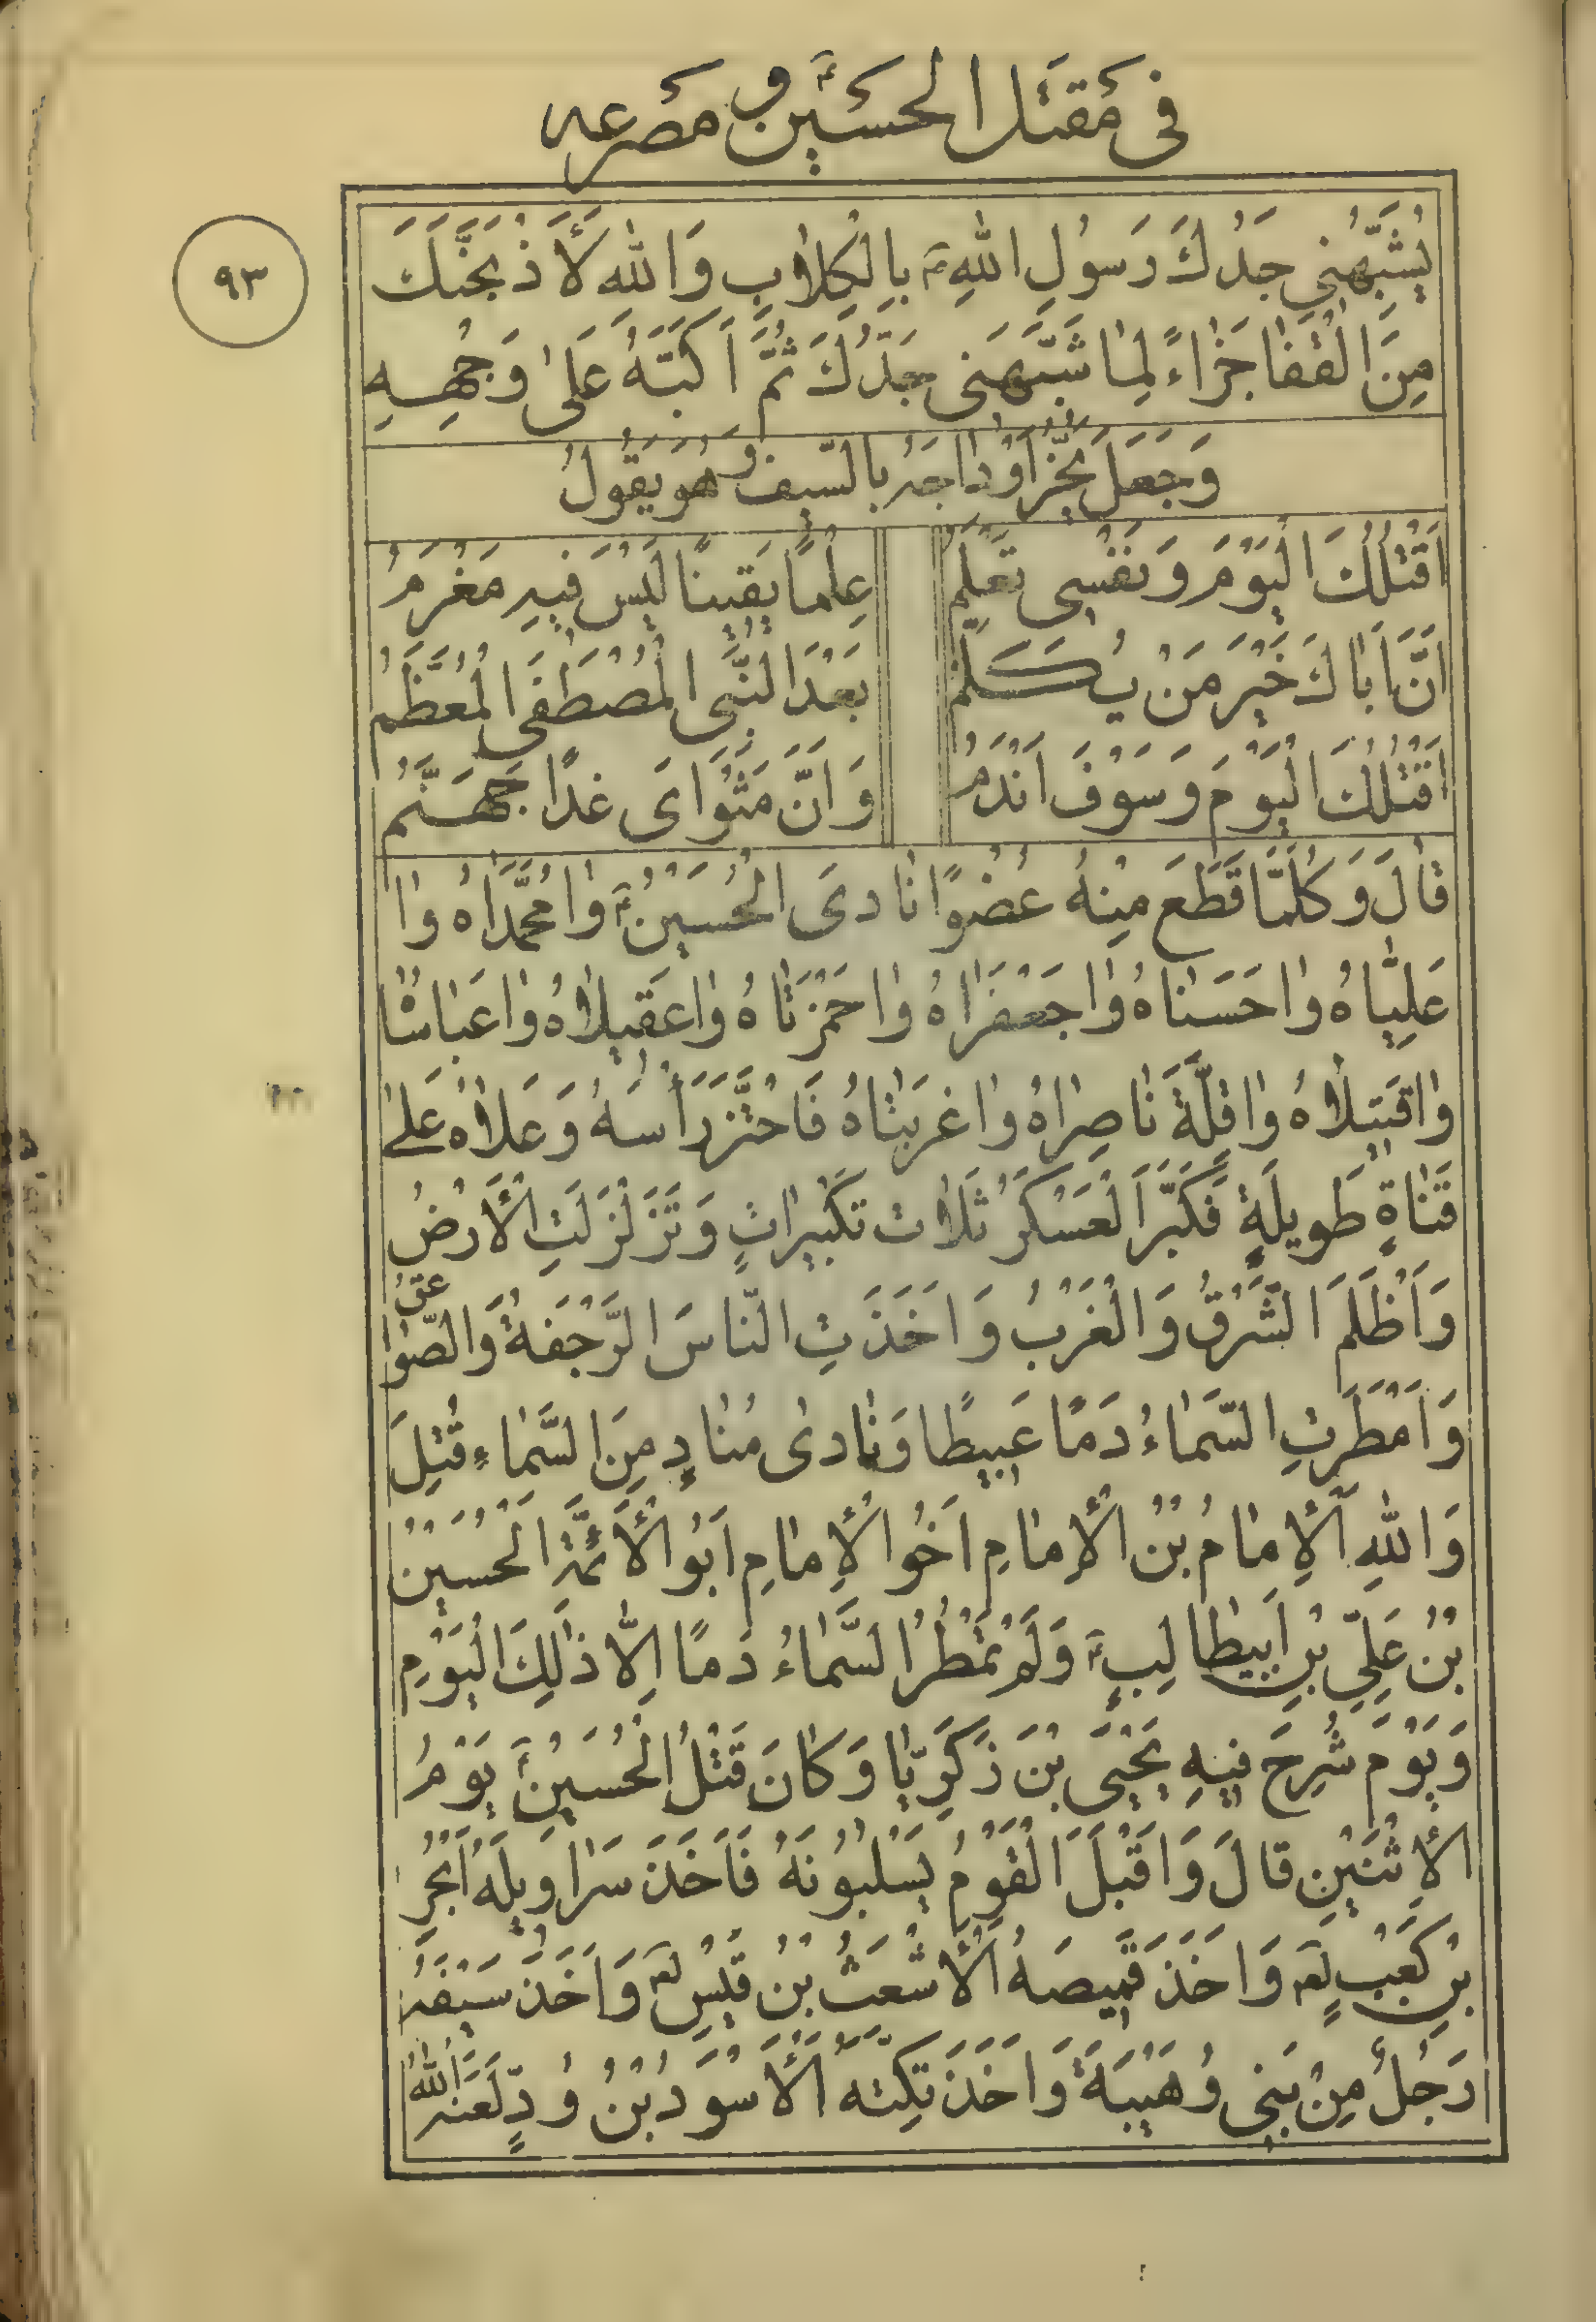 فى مَقتَل الحسَين ع و مَصرَعه
٩٣
يُشَبِّهُنِي جَدُّكَ رَسُولِ اللهِ ص بِالْكِلٰابِ وَاللهِ لَأَذْبَحَنَّكَ
مِنَ الْقَفٰا جَزٰاءً لِمٰا شَبَّهَنِى جَدُّكَ ثُمَّ اَكَبَّهُ عَلىٰ وَجْهِهِ
وَجَعَلَ يَحُزُّ اَوْدٰاجَهُ بِالسَّيفِ وَ هُوَ يَقُولُ
اَقْتُلُكَ الْيَوْمَ وَ نَفْسِى تَعْلَمُ عِلْمًا يَقينًا لَيْسَ فيهِ مَغْرَمُ
اَنَّ اَبٰاكَ خَيْرَ مَنْ يُكَلَّمُ بَعْدَ النَّبِى الْمُصْطَفَى الْمُعَظَّمُ
اَقْتُلُكَ الْيَوْمَ وَ سَوْفَ اَنْدَمُ وَ اَنَّ مَثْوَاىَ غَدًا جَهَنَّمُ
قٰالَ وَ كُلَّمٰا قَطَعَ مِنْهُ عُضْوًا نٰادىَ الْحُسَيْنُ ع وٰا مُحَمَّدٰاهُ وٰا
عَلِيّٰاهُ وٰا حَسَنٰاهُ وٰا جَعْفَرٰاهُ وٰا حَمْزَتٰاهُ وٰا عَقيلٰاهُ وٰا عَبّٰاسٰاهُ
وٰا قَتيلٰاهُ وٰا قِلَّةَ نٰاصِرٰاهُ وٰا غُرْبَتٰاهُ فَاحْتَزَّ رَأْسَهُ وَ عَلٰاهُ عَلىٰ
قَنٰاةٍ طَويلَةٍ فَكَبَّرَ الْعَسْكَرُ ثَلٰاثَ تَكْبيرٰاتٍ وَ تَزَلْزَلَتِ الْأَرْضُ
وَ اَظْلَمَ الشَّرْقُ وَ الْغَرْبُ وَ اَخَذَتِ النّٰاسَ الرَّجْفَةُ وَ الصَّوٰاعِقُ
وَ اَمْطَرَتِ السَّمٰاءُ دَمًا عَبيطًا وَ نٰادىٰ مُنٰادٍ مِنَ السَّمٰاءِ قُتِلَ
وَ اللهِ الْإِمٰامُ بْنُ الْإِمٰامِ اَخُو الْإِمٰامِ اَبُو الْأَئِمَّةِ الْحُسَيْنُ
بْنُ عَلِيِّ بْنِ اَبيطٰالِبٍ ع وَ لَمْ تَمْطُرُ السَّمٰاءُ دَمًا اِلّٰا ذٰلِكَ الْيَوْمِ
وَ يَوْمَ شُرِحَ فيهِ يَحْيَى بْنَ زَكَرِيّٰا وَ كٰانَ قَتْلُ الْحُسَيْنِ ع يَوْمُ
الْإِثْنَيْنِ قٰالَ وَ اَقْبَلَ الْقَوْمُ يَسْلُبُونَهُ فَاَخَذَ سَرٰاويلَهُ اَبْحُرِ
بْنِ كَعْبٍ لعه وَ اَخَذَ قَميصَهُ الْأَشْعَثُ بْنُ قَيْسٍ لعه وَ اَخَذَ سَيْفَهُ
رَجُلٌ مِنْ بَنِي وُهَيْبَةَ وَ اَخَذَ تِكَّتَهُ الْأَسْوَدُ بْنُ وُدٍّ لَعَنَهُ اللهُ